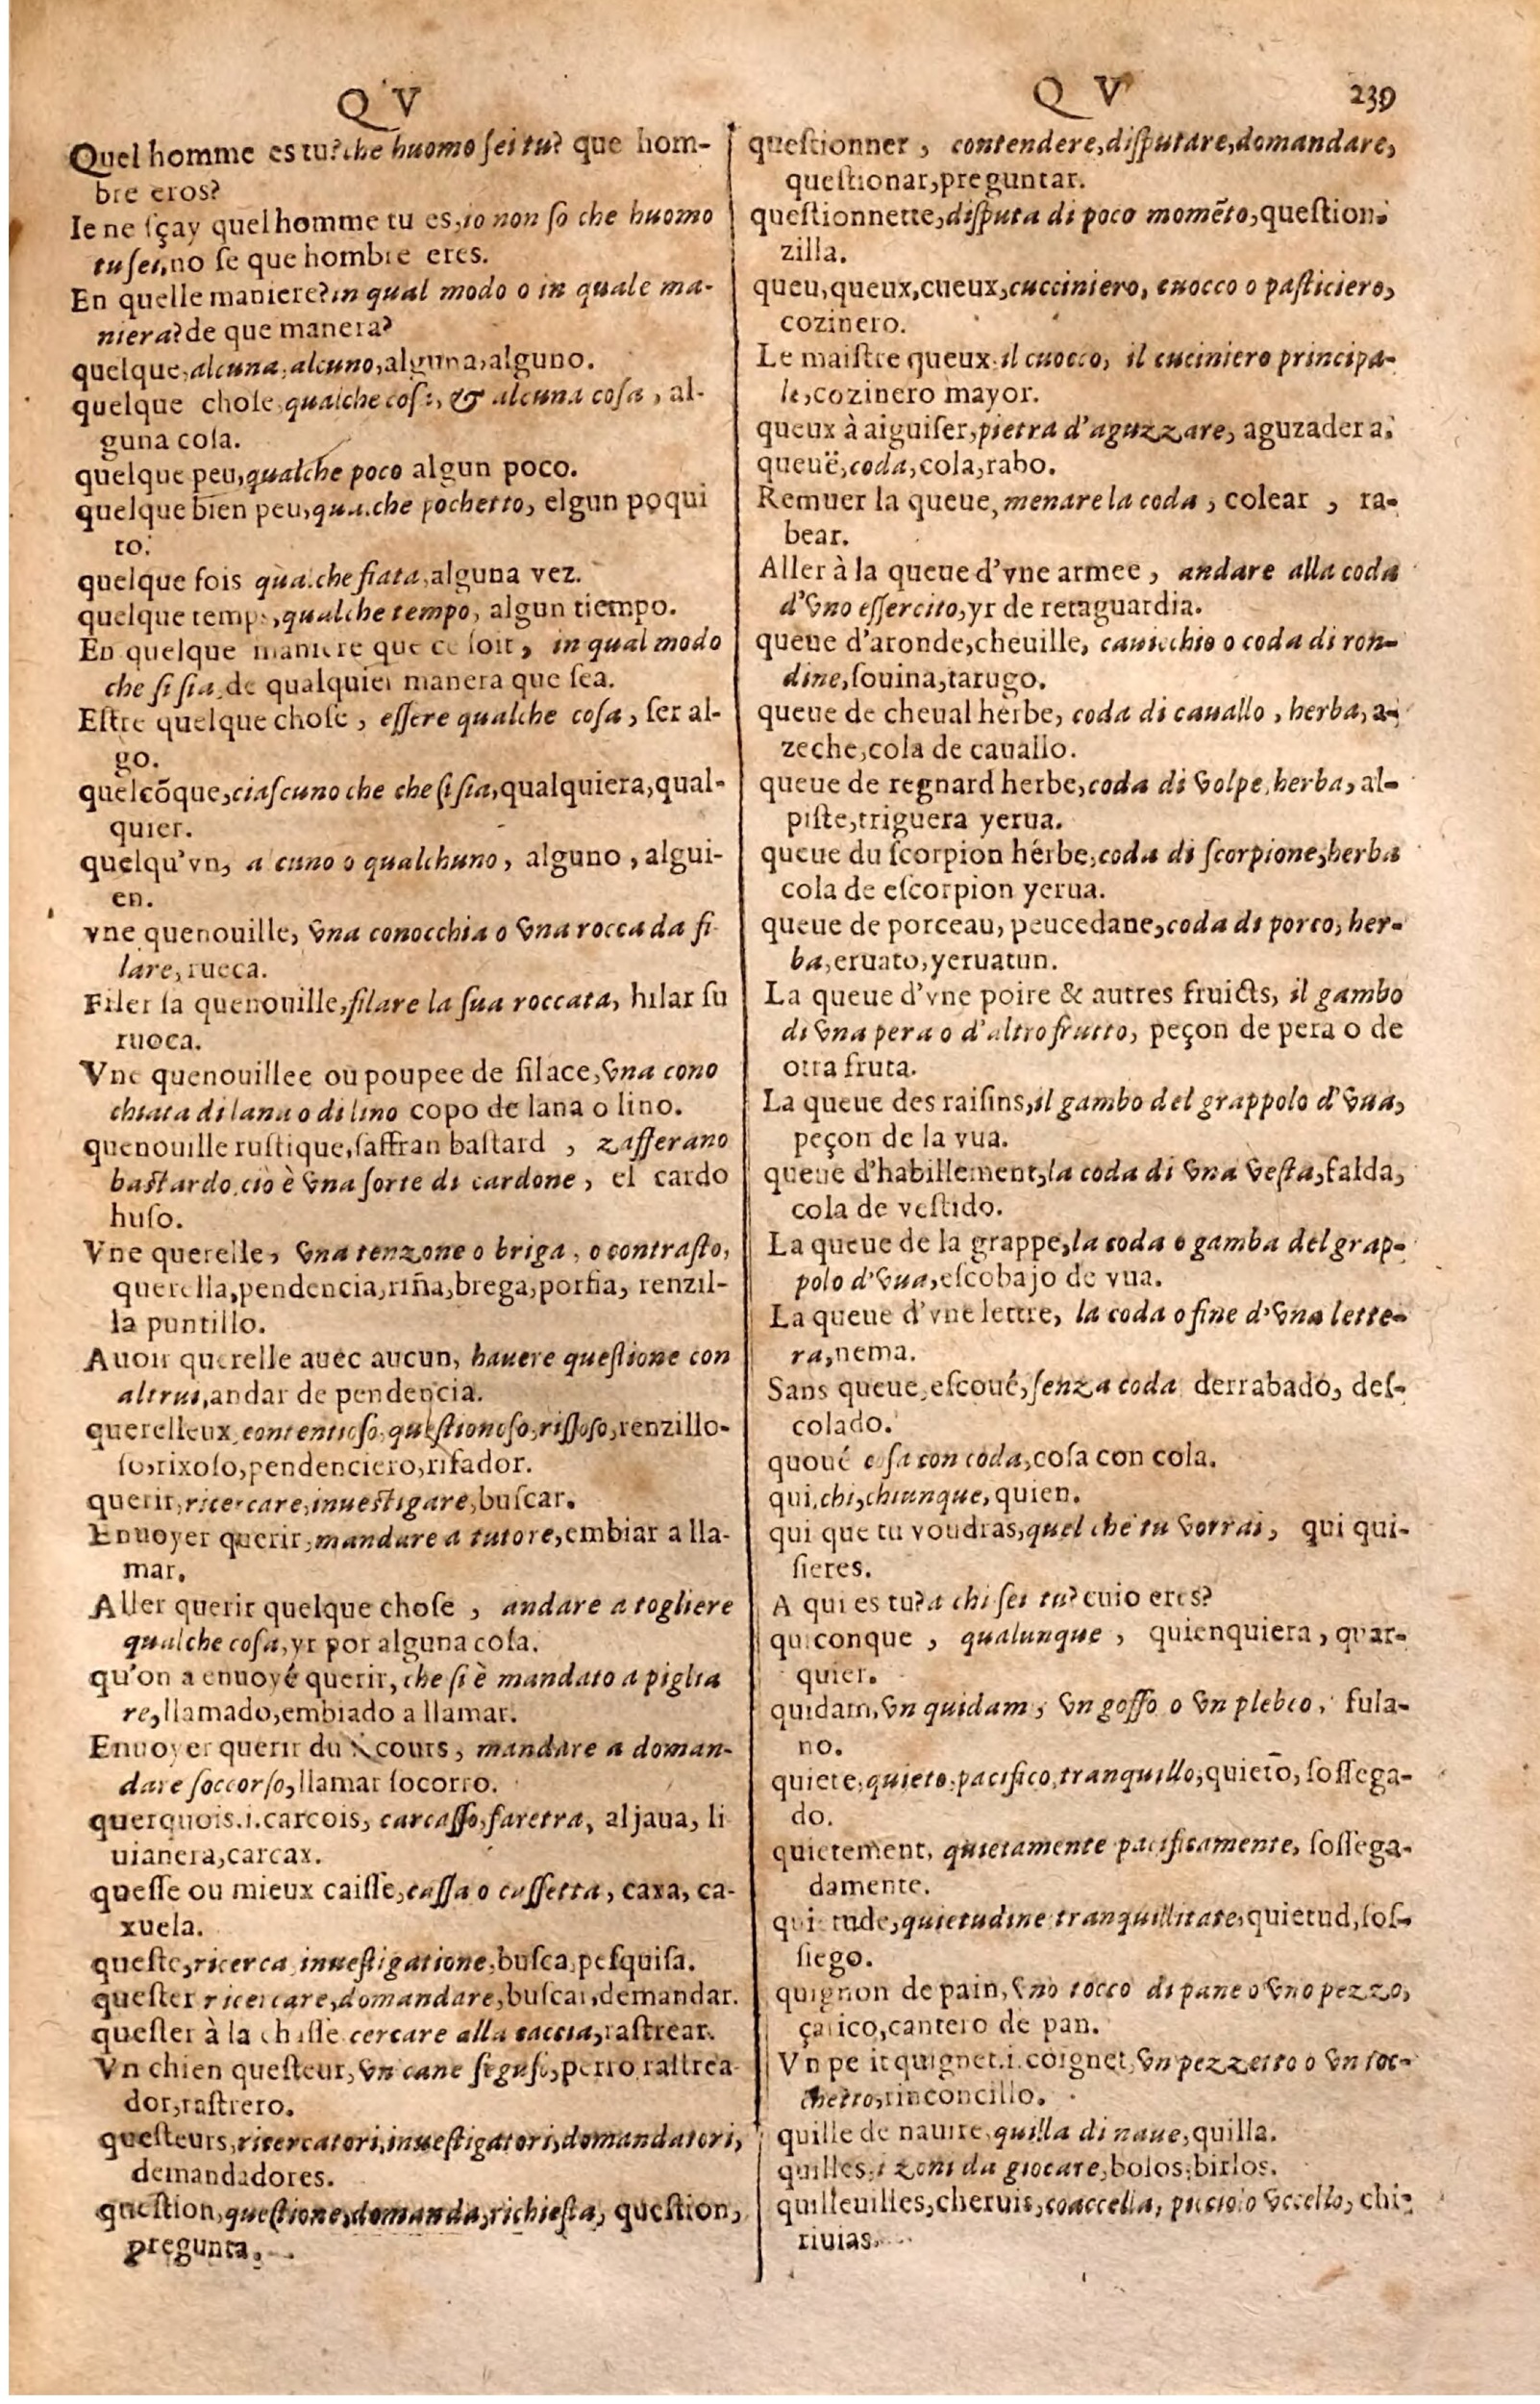 Q V
Quel homme es tu? che huomo ſei tu? que hom-
bre eros?
Ie ne ſçay quel homme tu es, io non ſo che huomo
tu ſei, no ſe que hombre eres.
En quelle maniere? in qual modo o in quale ma-
niera? de que manera?
quelque, alcuna, alcuno, alguna, alguno.
quelque choſe, qualche coſa, & alcuna coſa, al-
guna coſa.
quelque peu, qualche poco algun poco.
quelque bien peu, qualche pochetto, elgun poqui
to.
quelque fois qualche fiata, alguna vez.
quelque temps, qualche tempo, algun tiempo.
En quelque maniere que ce ſoit, in qual modo
che ſi ſia, de qualquier manera que ſea.
Eſtre quelque choſe, eſſere qualche coſa, ſer al-
go.
quelcõque, ciaſcuno che che ſi ſia, qualquiera, qual-
quier.
quelqu'vn, a cuno o qualchuno, alguno, algui-
en.
vne quenouille, vna conocchia o vna rocca da fi
lare, rueca.
Filer ſa quenouille, filare la ſua roccata, hilar ſu
ruoca.
Vne quenouillee ou poupee de filace, vna cono
chiata di lana o di lino copo de lana o lino.
quenouille ruſtique, ſaffran baſtard, zafferano
baſtardo, ciò è vna ſorte di cardone, el cardo
huſo.
Vne querelle, vna tenzone o briga, o contraſto,
querella, pendencia, riña, brega, porfia, renzil-
la puntillo.
Auoir querelle auec aucun, hauere queſtione con
altrui, andar de pendencia.
querelleux, contentioſo, queſtionoſo, riſſoſo, renzillo-
ſo, rixoſo, pendenciero, rifador.
querir, ricercare, inueſtigare, buſcar.
Enuoyer querir, mandare a tutore, embiar a lla-
mar.
Aller querir quelque choſe, andare a togliere
qualche coſa, yr por alguna coſa.
qu'on a enuoyé querir, che ſi è mandato a piglia
re, llamado, embiado a llamar.
Enuoyer querir du ſecours, mandare a doman-
dare ſoccorſo, llamar ſocorro.
querquois.i.carcois, carcaſſo, faretra, aljaua, li
uianera, carcax.
queſſe ou mieux caiſſe, caſſa o caſſetta, caxa, ca-
xuela.
queſte, ricerca, inueſtigatione, buſca, peſquiſa.
queſter ricercare, domandare, buſcar, demandar.
queſter à la chaſſe cercare alla caccia, raſtrear.
Vn chien queſteur, vn cane ſeguſo, perro raſtrea
dor, raſtrero.
queſteurs, ricercatori, inueſtigatori, domandatori,
demandadores.
queſtion, queſtione, domanda, richieſta, queſtion,
pregunta.
Q V 239
queſtionner, contendere, diſputare, domandare,
queſtionar, preguntar.
queſtionnette, diſputa di poco momẽto, queſtion-
zilla.
queu, queux, cueux, cucciniero, cuocco o paſticiero,
cozinero.
Le maiſtre queux il cuocco, il cuciniero principa-
le, cozinero mayor.
queux à aiguiſer, pietra d'aguzzare, aguzadera.
queuë, coda, cola, rabo.
Remuer la queue, menare la coda, colear, ra-
bear.
Aller à la queue d'vne armee, andare alla coda
d'vno eſſercito, yr de retaguardia.
queue d'aronde, cheuille, cauicchio o coda di ron-
dine, ſouina, tarugo.
queue de cheual herbe, coda di cauallo, herba, a-
zeche, cola de cauallo.
queue de regnard herbe, coda di volpe, herba, al-
piſte, triguera yerua.
queue du ſcorpion herbe, coda di ſcorpione, herba
cola de eſcorpion yerua.
queue de porceau, peucedane, coda di porco, her-
ba, eruato, yeruatun.
La queue d'vne poire & autres fruicts, il gambo
di vna pera o d'altro frutto, peçon de pera o de
otra fruta.
La queue des raiſins, il gambo del grappolo d'vua,
peçon de la vua.
queue d'habillement, la coda di vna veſta, falda,
cola de veſtido.
La queue de la grappe, la coda o gamba del grap-
polo d'vua, eſcobajo de vua.
La queue d'vne lettre, la coda o fine d'vna lette-
ra, nema.
Sans queue, eſcoué, ſenza coda derrabado, deſ-
colado.
quoué coſa con coda, coſa con cola.
qui, chi, chiunque, quien.
qui que tu voudras, quel che tu vorrai, qui qui-
ſieres.
A qui es tu? a chi ſei tu? cuio eres?
quiconque, qualunque, quienquiera, quar-
quier.
quidam, vn quidam, vn goffo o vn plebeo, fula-
no.
quiete, quieto, pacifico, tranquillo, quieto, ſoſſega-
do.
quietement, quietamente pacificamente, ſoſſega-
damente.
quietude, quietudine tranquillitate, quietud, ſoſ-
ſiego.
quignon de pain, vno tocco di pane o vno pezzo,
çatico, cantero de pan.
Vn petit quignet.i.coignet, vn pezzetto o vn toc-
chetto, rinconcillo.
quille de nauire, quilla di naue, quilla.
quilles, i zoni da giocare, bolos, birlos.
quilleuilles, cheruis, coaccella, picciolo vccello, chi-
riuias.